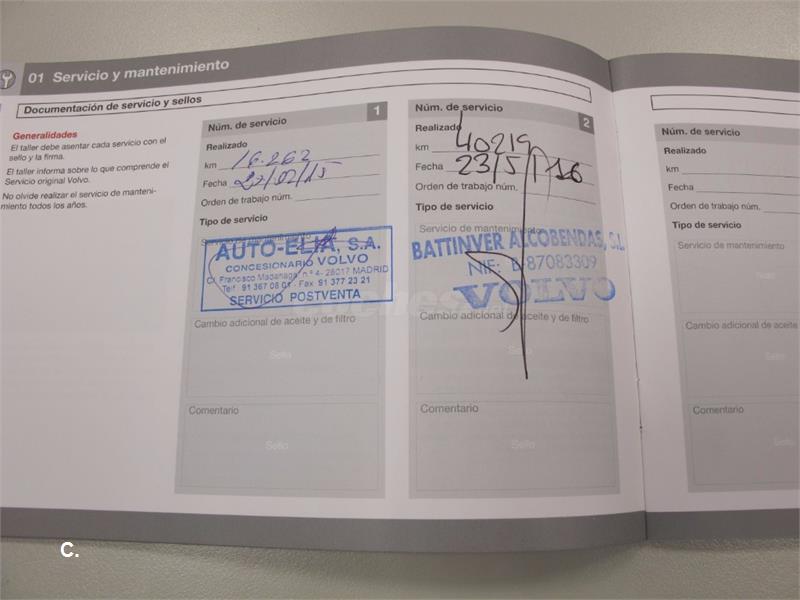 01 Servicio y mantenimiento
Documentación de servicio y sellos
Generalidades
El taller debe asentar cada servicio con el
sello y la firma.
El taller informa sobre lo que comprende el
Servicio original Volvo.
No olvide realizar el servicio de manteni-
miento todos los años.
Núm. de servicio
1
Realizado
km 16.262
Fecha 27/02/15
Orden de trabajo núm.
Tipo de servicio
Servicio de mantenimiento
AUTO-ELIA, S.A.
CONCESIONARIO VOLVO
C/. Francisco Madariaga, n.º 4- 28017 MADRID
Telf. 91 367 08 01 - Fax 91 377 23 21
SERVICIO POSTVENTA
Cambio adicional de aceite y de filtro
Sello
Comentario
Sello
Núm. de servicio
2
Realizado
km 40219
Fecha 23/5/16
Orden de trabajo núm.
Tipo de servicio
Servicio de mantenimiento
BATTINVER ALCOBENDAS, S.L.
NIF: B-87083309
VOLVO
Cambio adicional de aceite y de filtro
Sello
Comentario
Sello
Núm. de servicio
Realizado
km
Fecha
Orden de trabajo núm.
Tipo de servicio
Servicio de mantenimiento
Sello
Cambio adicional de aceite y de
Sello
Comentario
Sello
C.